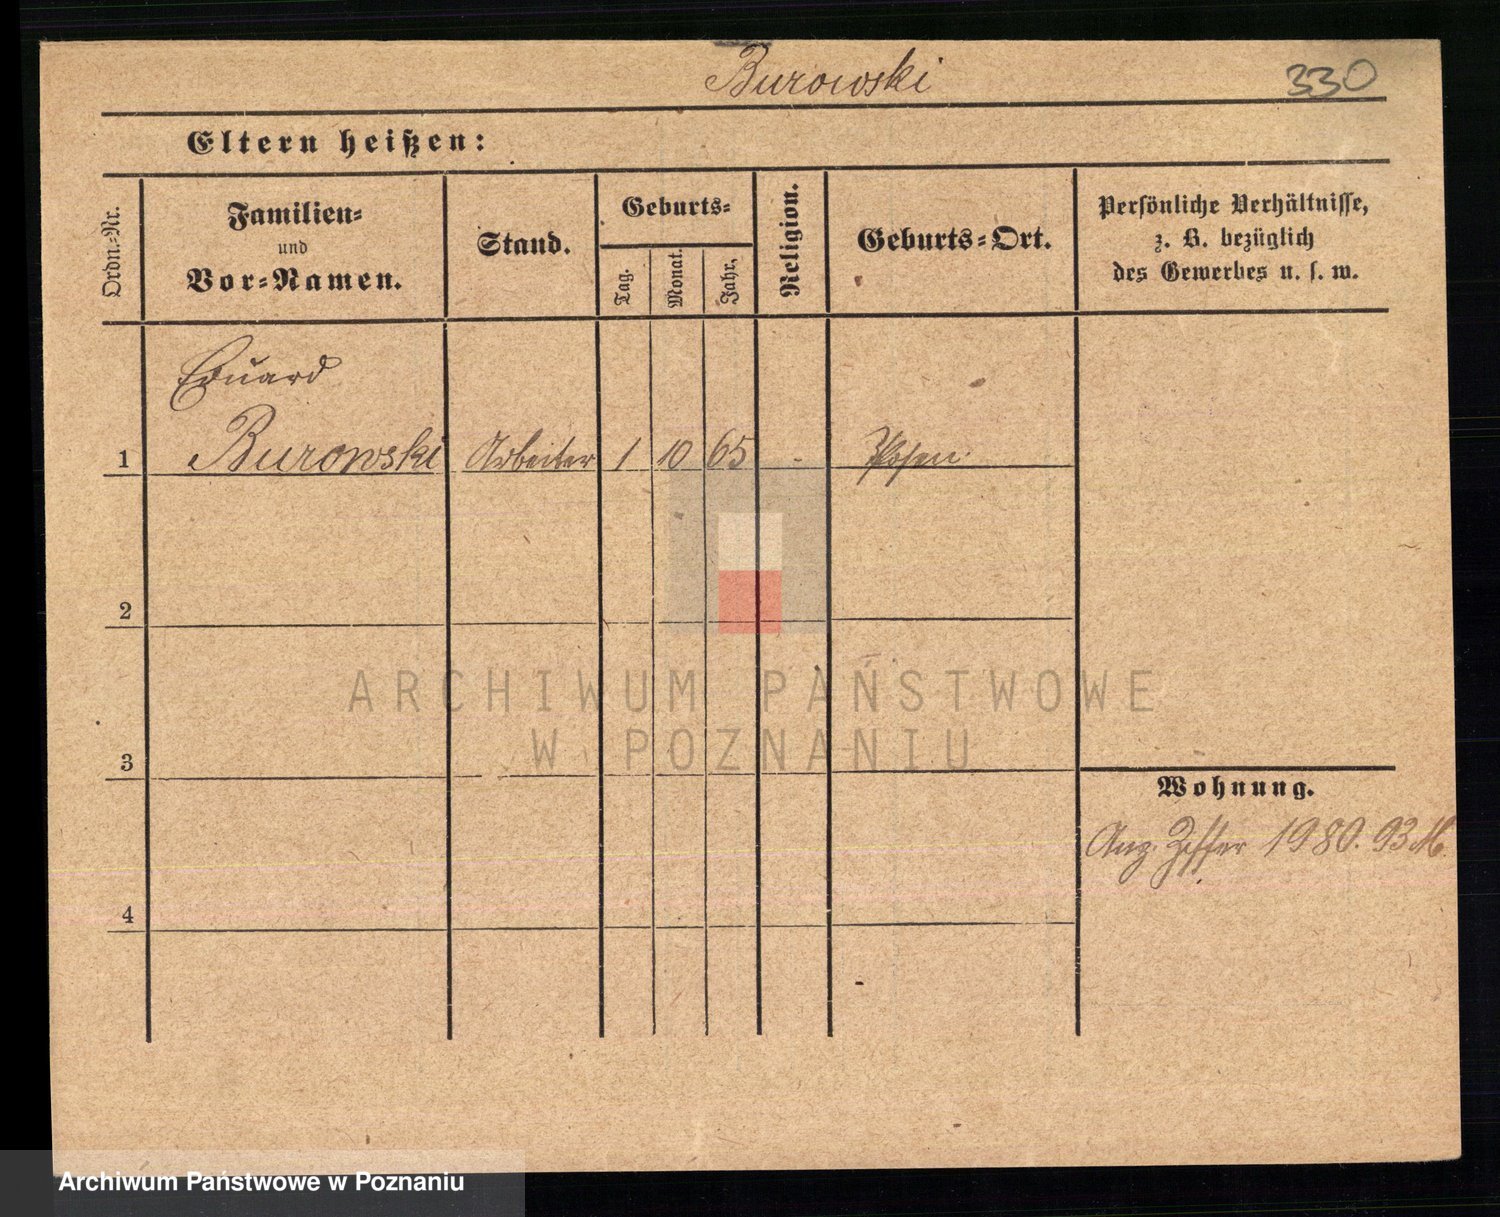 Burowski
330
Eltern heißen:
Ordn.-Nr.
Familien-
und
Vor-Namen.
Stand.
Geburts-
Tag.
Monat.
Jahr.
Religion.
Geburts-Ort.
Persönliche Verhältnisse,
z. B. bezüglich
des Gewerbes u. s. w.
Eduard
1 Burowski Arbeiter 1 10 65 - Posen
2
3
4
Wohnung.
1980. 93 M.
ARCHIWUM PAŃSTWOWE
W POZNANIU
Archiwum Państwowe w Poznaniu